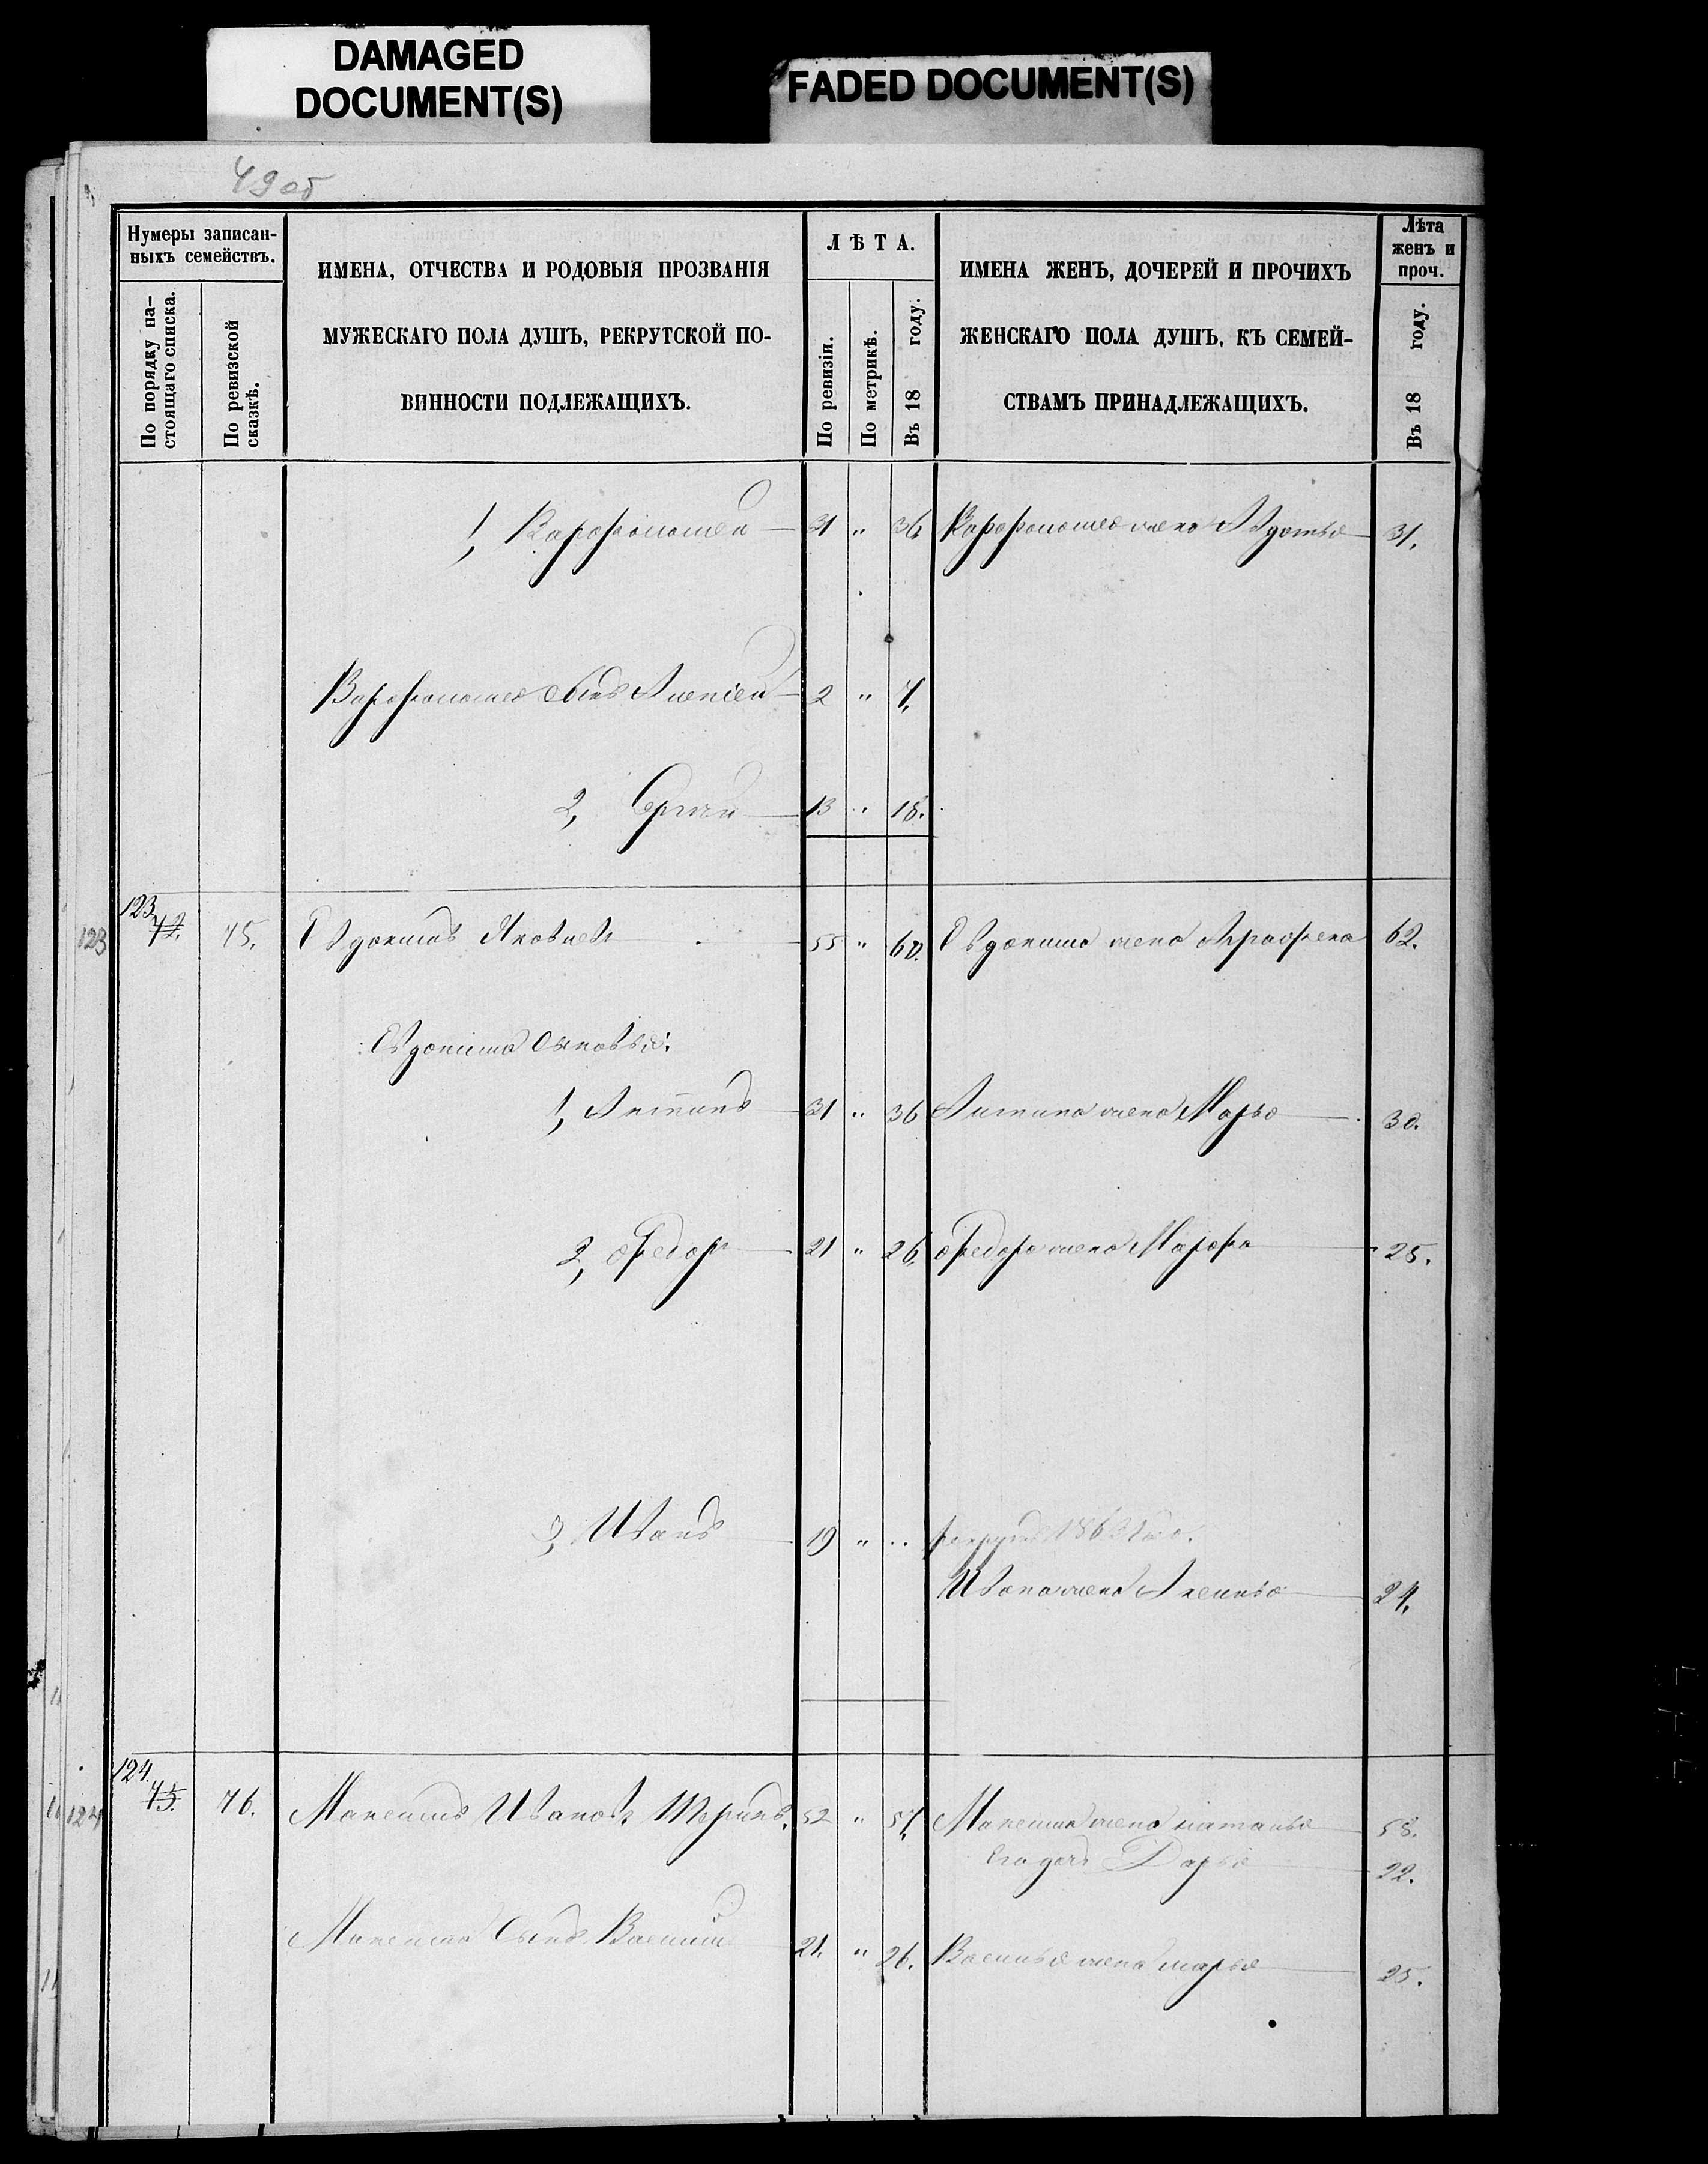 DAMAGED
DOCUMENT(S)
FADED DOCUMENT(S)
49 об
Нумеры записан-
ныхъ семействъ.
По порядку на-
стоящаго списка.
По ревизской
сказкѣ.
ИМЕНА, ОТЧЕСТВА И РОДОВЫЯ ПРОЗВАНІЯ
МУЖЕСКАГО ПОЛА ДУШЪ, РЕКРУТСКОЙ ПО-
ВИННОСТИ ПОДЛЕЖАЩИХЪ.
ЛѢТА.
По ревизіи.
По метрикѣ.
Въ 18 году.
ИМЕНА ЖЕНЪ, ДОЧЕРЕЙ И ПРОЧИХЪ
ЖЕНСКАГО ПОЛА ДУШЪ, КЪ СЕМЕЙ-
СТВАМЪ ПРИНАДЛЕЖАЩИХЪ.
Лѣта
женъ и
проч.
Въ 18 году.
1, Варфоломей 31 " 36 Варфоломея жена Авдотья 31.
Варфоломея сынъ Алексей 2 " 7.
2, Сергей 13 " 18.
123 123. 72. 75. Евдокимъ Яковлевъ 55 " 60. Евдокима жена Аграфена 62.
Евдокима сыновья:
1, Антипъ 31 " 36 Антипа жена Марья 30.
2, Федоръ 21 " 26. Федора жена Марфа 25.
3, Иванъ 19 " " рекрутъ 1863 года.
Ивана жена Аксинья 24.
124 124. 73. 76. Максимъ Ивановъ 52 " 57. Максима жена Наталья 58.
Его дочь Дарья 22.
Максима сынъ Василий 21. " 26. Василья жена Марья 25.